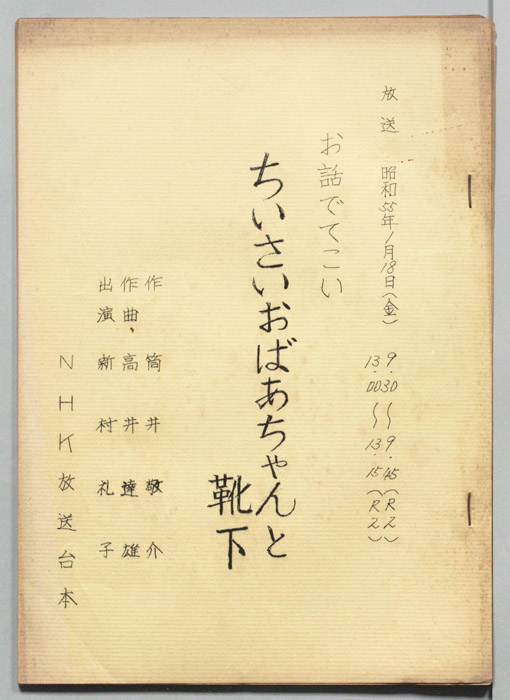 放送 昭和55年1月18日(金) 9.30〜9.45(R2)
13.00〜13.15(R2)
お話でてこい
ちいさいおばあちゃんと
靴下
作 筒井敬介
作曲、高井達雄
出演 新村礼子
NHK放送台本